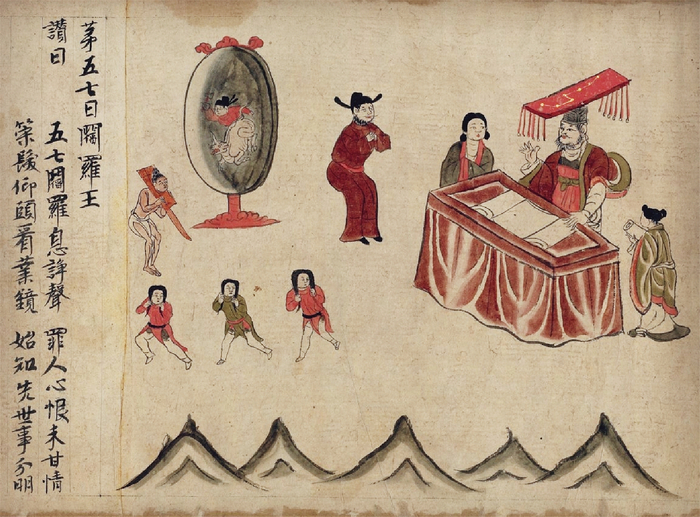 苐五七日閻羅王
讃曰 五七閻羅息諍聲 罪人心恨未甘情
策髮仰頭看業鏡 始知先世事分明